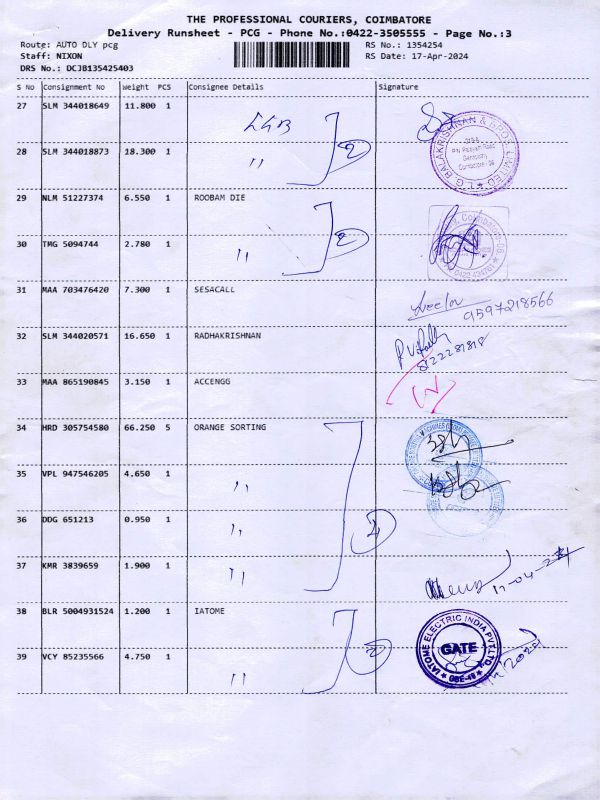 THE PROFESSIONAL COURIERS, COIMBATORE
Delivery Runsheet - PCG - Phone No.:0422-3505555 - Page No.:3
Route: AUTO DLY pcg RS No.: 1354254
Staff: NIXON RS Date: 17-Apr-2024
DRS No.: DCJB135425403
S No Consignment No Weight PCS Consignee Details Signature
27 SLM 344018649 11.800 1 LGB
28 SLM 344018873 18.300 1 " 2
29 NLM 51227374 6.550 1 ROOBAM DIE
30 TMG 5094744 2.780 1 " 2
31 MAA 703476420 7.300 1 SESACALL
9597218566
32 SLM 344020571 16.650 1 RADHAKRISHNAN
33 MAA 865190845 3.150 1 ACCENGG
34 HRD 305754580 66.250 5 ORANGE SORTING
35 VPL 947546205 4.650 1 "
36 DDG 651213 0.950 1 " 4
37 KMR 3839659 1.900 1 "
38 BLR 5004931524 1.200 1 IATOME
IATOME ELECTRIC INDIA PVT.LTD
GATE
CBE-49
39 VCY 85235566 4.750 1 " 2